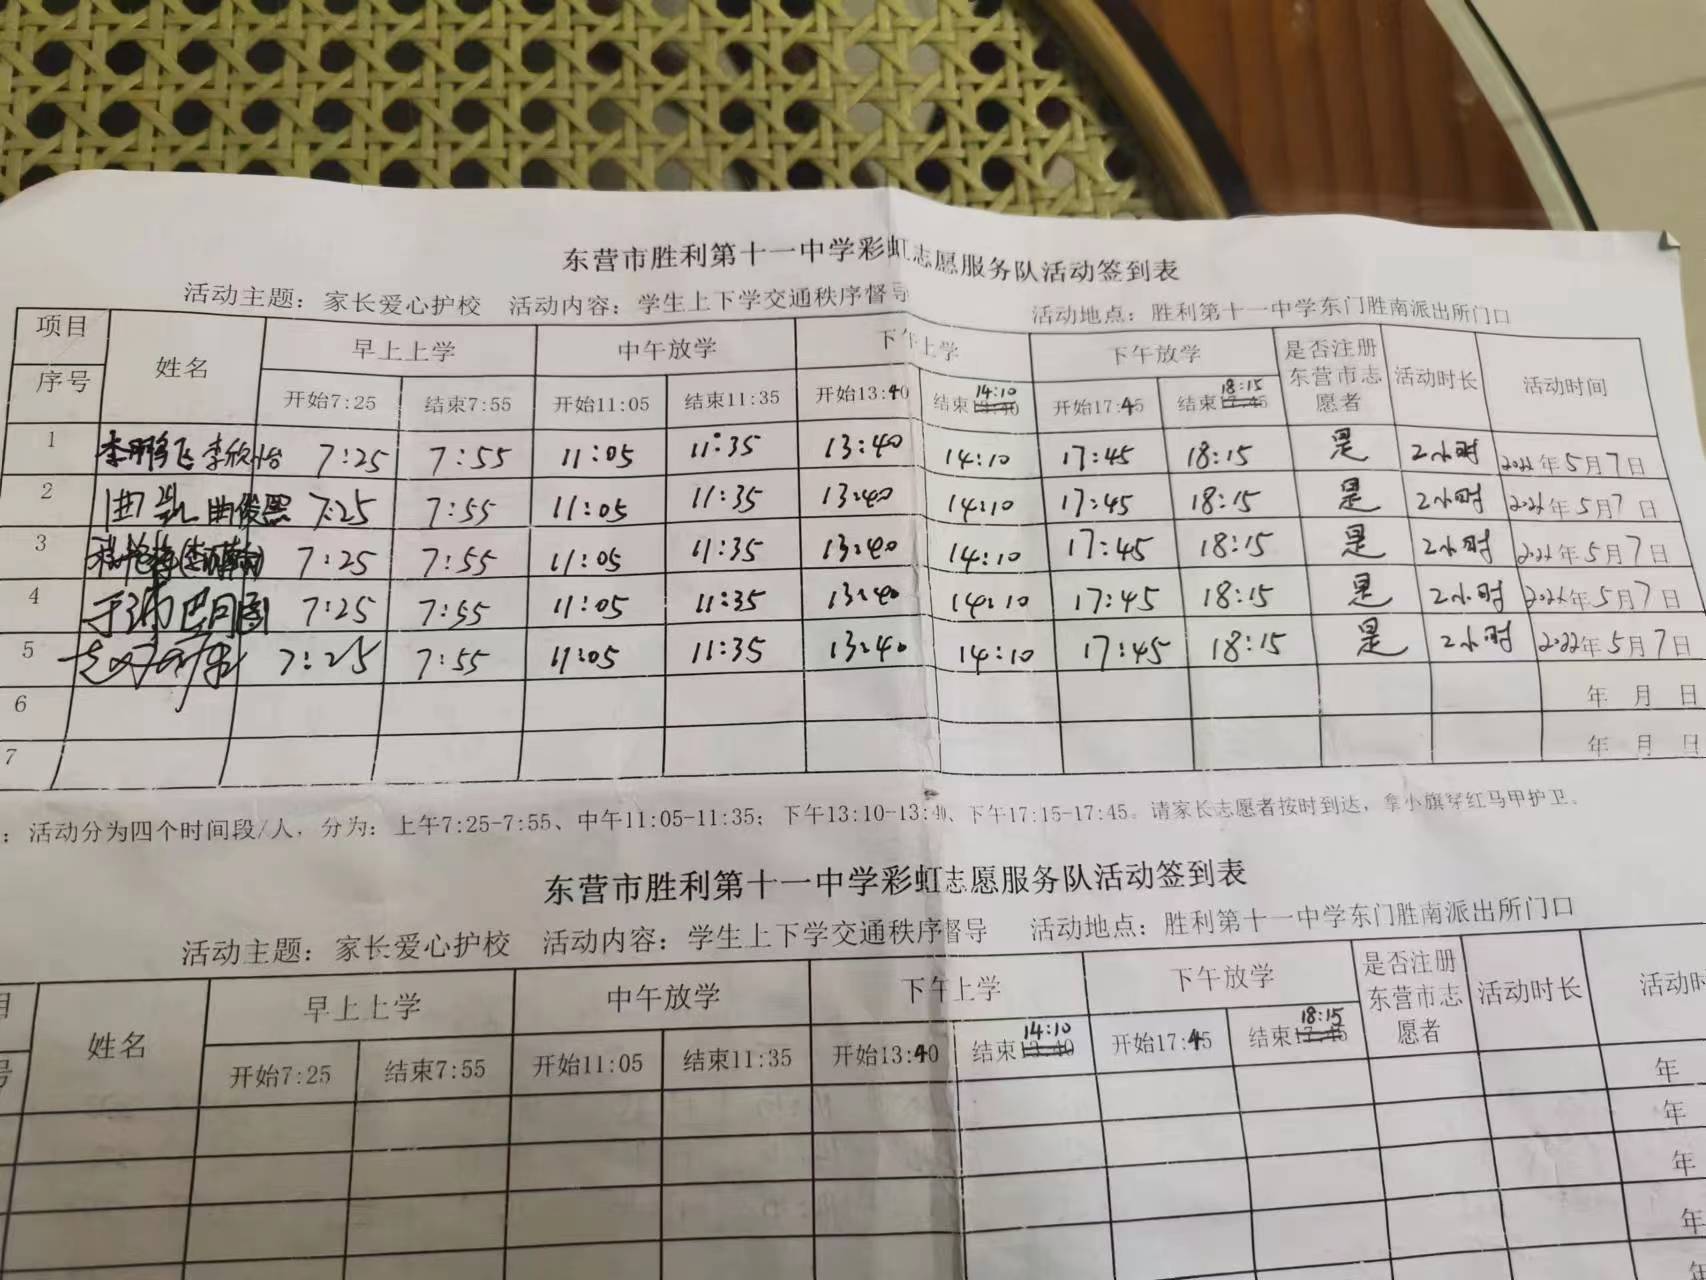 东营市胜利第十一中学彩虹志愿服务队活动签到表
活动主题：家长爱心护校 活动内容：学生上下学交通秩序督导 活动地点：胜利第十一中学东门胜南派出所门口
项目 姓名 早上上学 中午放学 下午上学 下午放学 是否注册东营市志愿者 活动时长 活动时间
序号 开始7:25 结束7:55 开始11:05 结束11:35 开始13:40 结束14:10 开始17:45 结束18:15
1 李鹏飞 李欣怡 7:25 7:55 11:05 11:35 13:40 14:10 17:45 18:15 是 2小时 2022年5月7日
2 曲凯 曲俊熙 7:25 7:55 11:05 11:35 13:40 14:10 17:45 18:15 是 2小时 2022年5月7日
3 7:25 7:55 11:05 11:35 13:40 14:10 17:45 18:15 是 2小时 2022年5月7日
4 7:25 7:55 11:05 11:35 13:40 14:10 17:45 18:15 是 2小时 2022年5月7日
5 7:25 7:55 11:05 11:35 13:40 14:10 17:45 18:15 是 2小时 2022年5月7日
6 年 月 日
7 年 月 日
：活动分为四个时间段/人，分为：上午7:25-7:55、中午11:05-11:35；下午13:10-13:40、下午17:15-17:45。请家长志愿者按时到达，拿小旗穿红马甲护卫。
东营市胜利第十一中学彩虹志愿服务队活动签到表
活动主题：家长爱心护校 活动内容：学生上下学交通秩序督导 活动地点：胜利第十一中学东门胜南派出所门口
目 姓名 早上上学 中午放学 下午上学 下午放学 是否注册东营市志愿者 活动时长 活动时
号 开始7:25 结束7:55 开始11:05 结束11:35 开始13:40 结束14:10 开始17:45 结束18:15
年
年
年
年
年